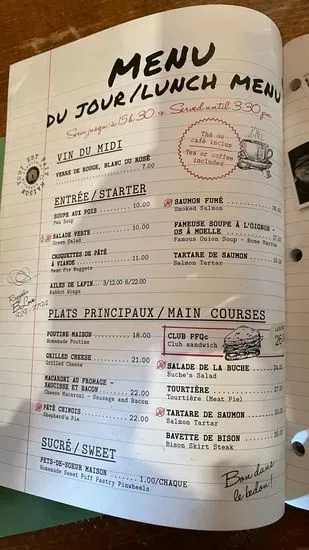 MENU
DU JOUR/LUNCH MENU
Servi jusqu'à 15h30 Served until 3:30 pm
TOUT EST FAIT MAISON
Thé ou
café inclus
Tea or coffee
included
VIN DU MIDI
VERRE DE ROUGE, BLANC OU ROSÉ 7.00
ENTRÉE/STARTER
SOUPE AUX POIS 10.00
Pea Soup
SALADE VERTE 10.00
Green Salad
CROQUETTES DE PÂTÉ
À VIANDE 11.00
Meat Pie Nuggets
AILES DE LAPIN 3/12.00 6/22.00
Rabbit Wings
SAUMON FUMÉ
Smoked Salmon
FAMEUSE SOUPE À L'OIGNON
OS À MOELLE
Famous Onion Soup - Bone Marrow
TARTARE DE SAUMON
Salmon Tartar
PLATS PRINCIPAUX/MAIN COURSES
POUTINE MAISON 18.00
Homemade Poutine
GRILLED CHEESE 21.00
Grilled Cheese
MACARONI AU FROMAGE -
SAUCISSE ET BACON 22.00
Cheese Macaroni - Sausage and Bacon
PÂTÉ CHINOIS 22.00
Shepherd's Pie
CLUB PFQc
Club sandwich
SALADE DE LA BUCHE
Buche's Salad
TOURTIÈRE
Tourtière (Meat Pie)
TARTARE DE SAUMON
Salmon Tartar
BAVETTE DE BISON
Bison Skirt Steak
SUCRÉ/SWEET
PETS-DE-SOEUR MAISON 1.00/CHAQUE
Homemade Sweet Puff Pastry Pinwheels
Bon dans
le bedon!